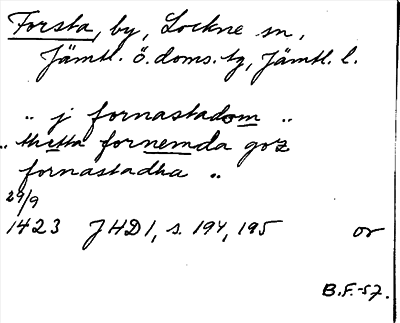 Forsta, by, Lockne sn,
Jämtl. ö. doms. tg, Jämtl. l.
" j fornastadom "
" thetta fornemda goz
fornastadha "
29/9
1423 JHD 1, s. 194, 195 or
B.F.-57.